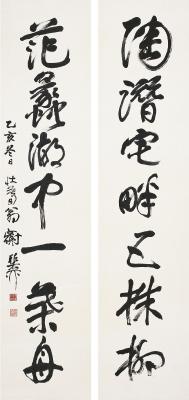 陶潛宅畔五株柳
范蠡湖中一葉舟
乙亥冬日